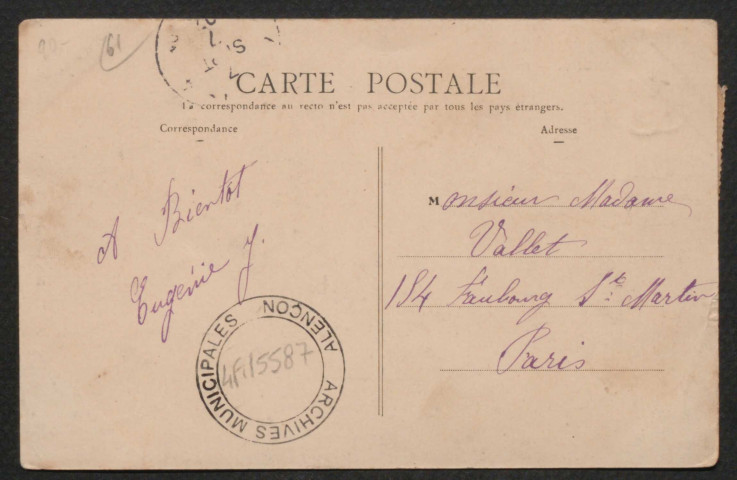 61
CARTE POSTALE
La correspondance au recto n'est pas acceptée par tous les pays étrangers.
Correspondance
Adresse
A Bientôt
Eugénie J.
Monsieur Madame
Vallet
184 Faubourg St Martin
Paris
ARCHIVES MUNICIPALES ALENÇON
4Fi15587